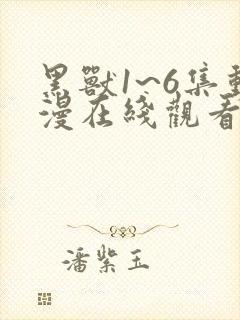 黑獸1~6集動
漫在綫觀看
潘紫玉